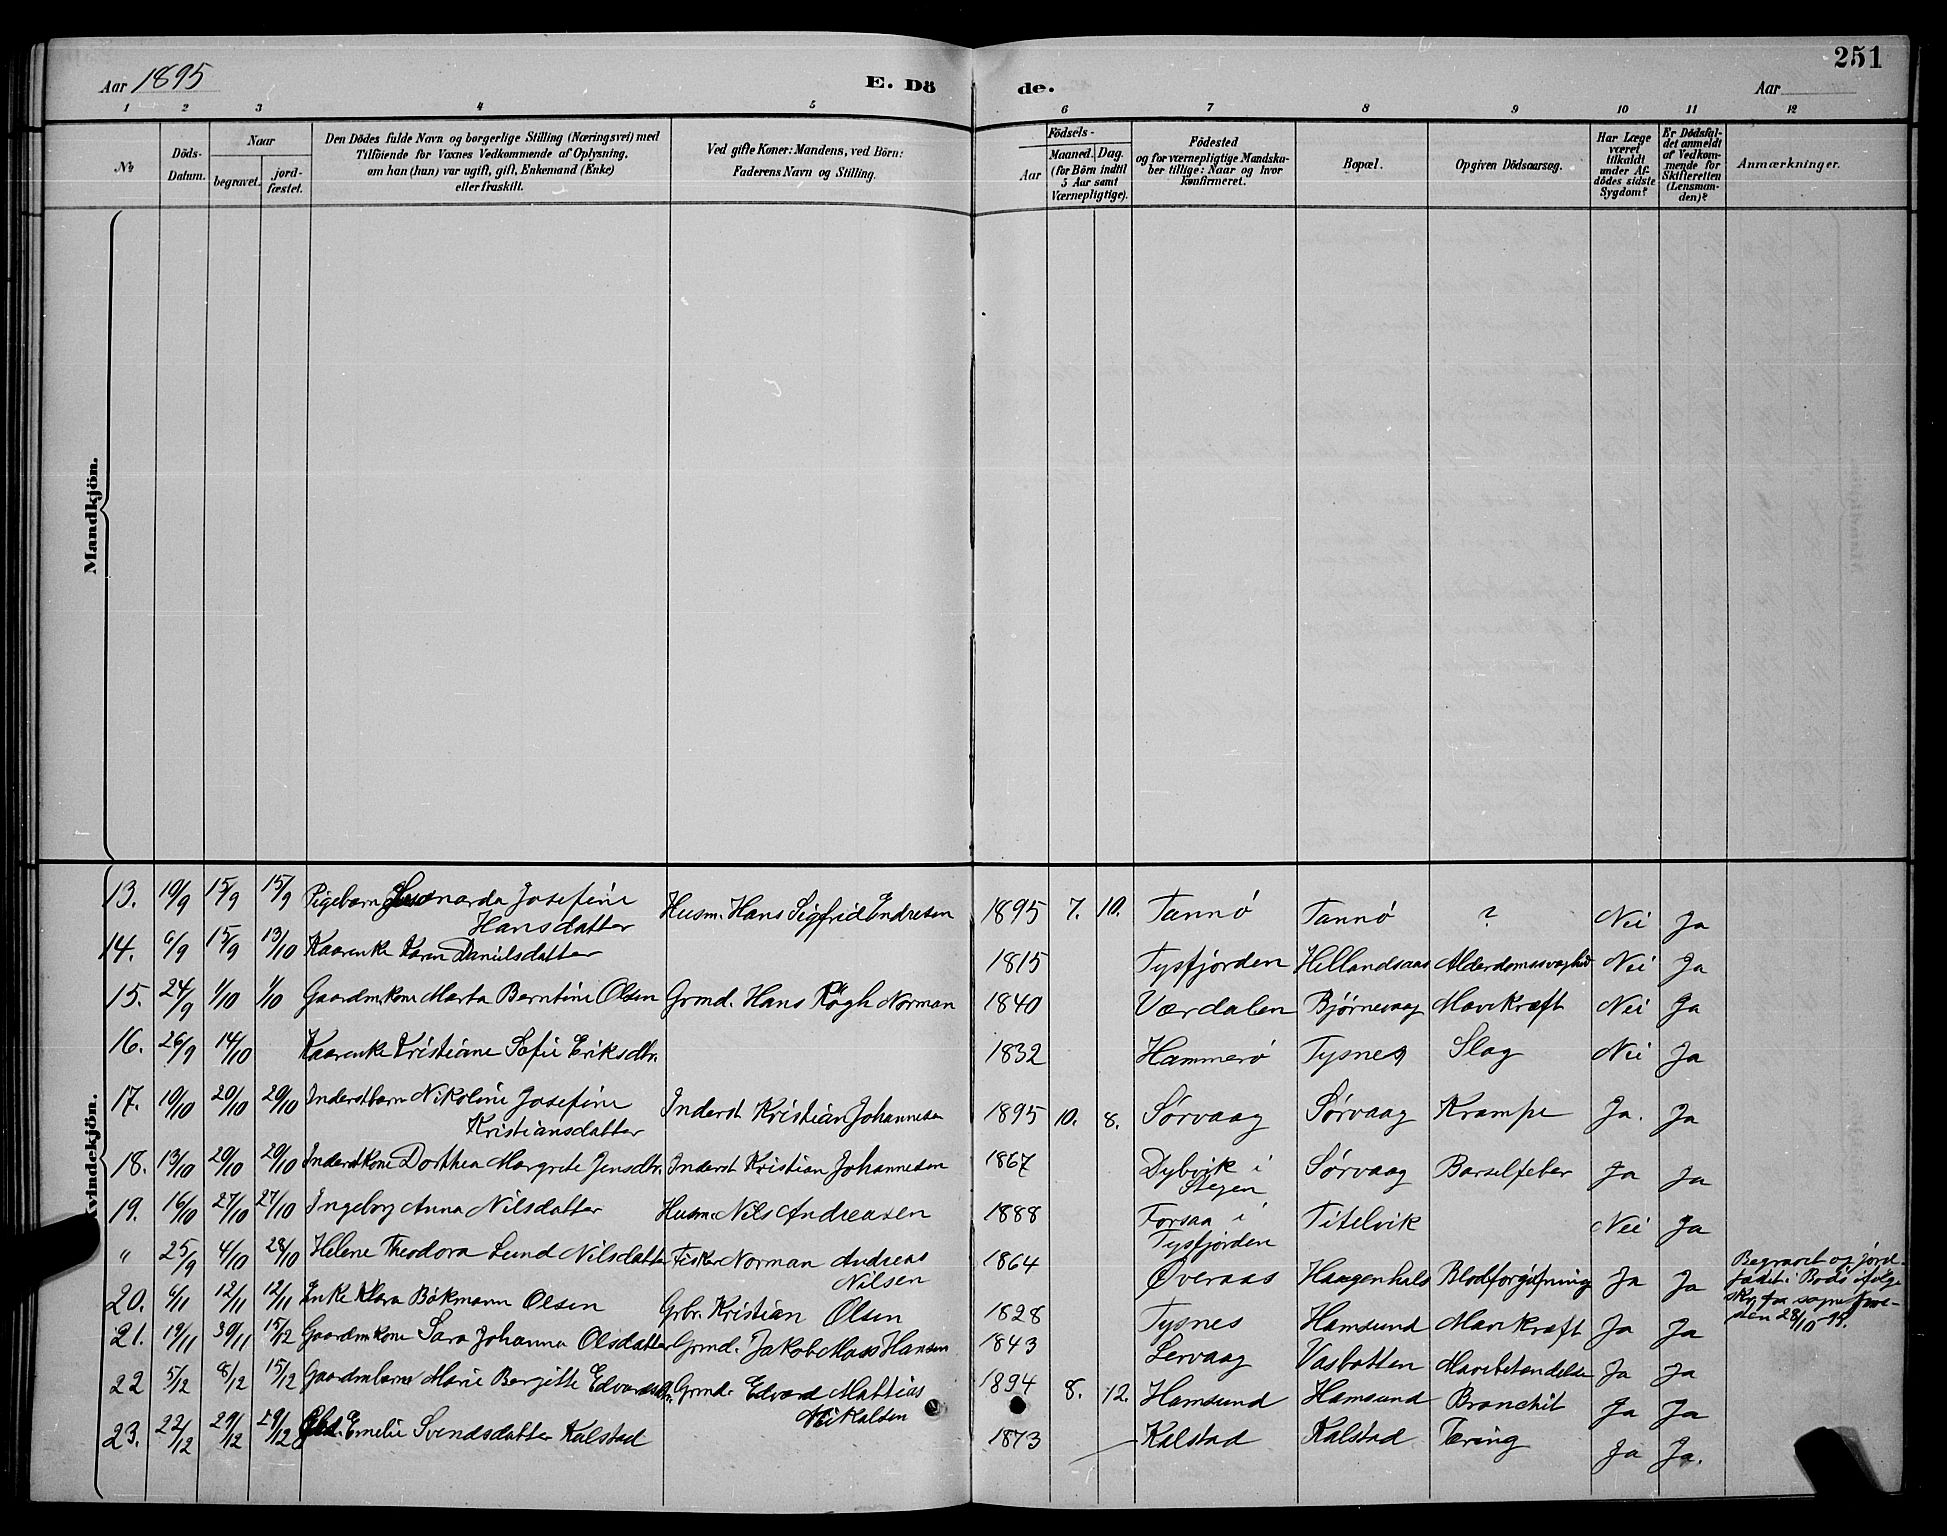 251
Aar 1895 E. Dö de. Aar
1 2 3 4 5 6 7 8 9 10 11 12
No Döds-Datum. Naar begravet. jord-fæstet. Den Dödes fulde Navn og borgerlige Stilling (Næringsvei) med Tilföiende for Voxnes Vedkommende af Oplysning, om han (hun) var ugift, gift, Enkemand (Enke) eller fraskilt. Ved gifte Koner: Mandens, ved Börn: Faderens Navn og Stilling. Födsels- Aar Maaned. Dag. (for Börn indtil 5 Aar samt Værnepligtige). Födested og for værnepligtige Mandskaber tillige: Naar og hvor konfirmeret. Bopæl. Opgiven Dödsaarsag. Har Læge været tilkaldt under Afdödes sidste Sygdom? Er Dödsfaldet anmeldt af Vedkommende for Skifteretten (Lensmanden)? Anmærkninger.
Mandkjön.
Kvindekjön.
13. 10/9 15/9 15/9 Pigebarn Josefine Hansdatter Husm. Hans Sigfrid Endresen 1895 7. 10. Tannø Tannø ? Nei Ja
14. 6/9 15/9 13/10 Kaarenke Karen Danielsdatter 1815 Tysfjorden Hellandsaas Alderdomssvaghed Nei Ja
15. 24/9 1/10 1/10 Gaardm.kone Marta Berntine Olsen Grmd. Hans Røgh Norman 1840 Værdalen Bjørnevaag Mavekræft Nei Ja
16. 26/9 14/10 Kaarenke Kristiane Sofie Eriksdtr. 1832 Hammerø Tysnes Slag Nei Ja
17. 10/10 20/10 20/10 Inderstbarn Nikoline Josefine Kristiansdatter Inderst Kristian Johannesen 1895 10. 8. Sørvaag Sørvaag Krampe Ja. Ja
18. 13/10 20/10 20/10 Inderstkone Dorthea Margrete Jensdtr. Inderst Kristian Johannesen 1867 Dybvik i Stegen Sørvaag Barselfeber Ja Ja
19. 16/10 27/10 27/10 Ingeborg Anna Nilsdatter Husm. Nils Andreasen 1888 Forsaa i Tysfjorden Titelvik Nei Ja
" 25/9 4/10 28/10 Helene Theodora Lund Nilsdatter Fisker Norman Andreas Nilsen 1864 Øveraas Haugenhals Blodforgiftning Ja Ja Begravet og jordfæstet i Bodø ifølge skr. fra sogneprsten 28/10 95.
20. 6/11 12/11 12/11 Enke Klara Bökmann Olsen Grbr. Kristian Olsen 1828 Tysnes Hamsund Mavekræft Ja Ja
21. 19/11 30/11 15/12 Gaardmkone Sara Johanna Olsdatter Grmd. Jakob Moss Hansen 1843 Lervaag Vasbotten Mavebetændelse Ja Ja
22 5/12 8/12 15/12 Gaardmbarn Marie Bergitte Edvardsdtr. Grmd. Edvard Mattias Nikalsen 1894 8. 12. Hamsund Hamsund Bronchit Ja Ja
23. 22/12 29/12 29/12 Emelie Svendsdatter Kalstad 1873 Kalstad Kalstad Tæring Ja Ja.